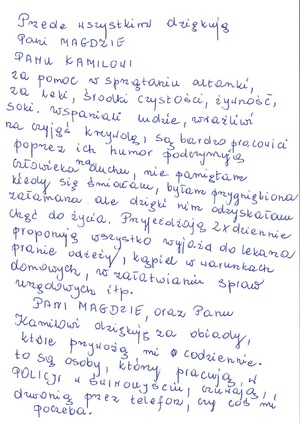 Przede wszystkim dziękuję
Pani MAGDZIE
PANU KAMILOWI
za pomoc w sprzątaniu altanki,
za leki, środki czystości, żywność,
soki. wspaniali ludzie, wrażliwi
na czyjąś krzywdę, są bardzo pracowici
poprzez ich humor podtrzymują
człowieka na duchu, nie pamiętam
kiedy się śmiałam, byłam przygnębiona
załamana ale dzięki nim odzyskałam
chęć do życia. Przyjeżdżają 2x dziennie
proponują wszystko wyjazd do lekarza
pranie odzieży, kąpiel w warunkach
domowych, w załatwianiu spraw
urzędowych itp.
PANI MAGDZIE, oraz Panu
Kamilowi dziękuję za obiady,
które przywożą mi codziennie.
to są osoby, który pracują w
POLICJI w ŚWINOUJŚCIU, czuwają,
dzwonią przez telefon, czy coś mi
potrzeba.